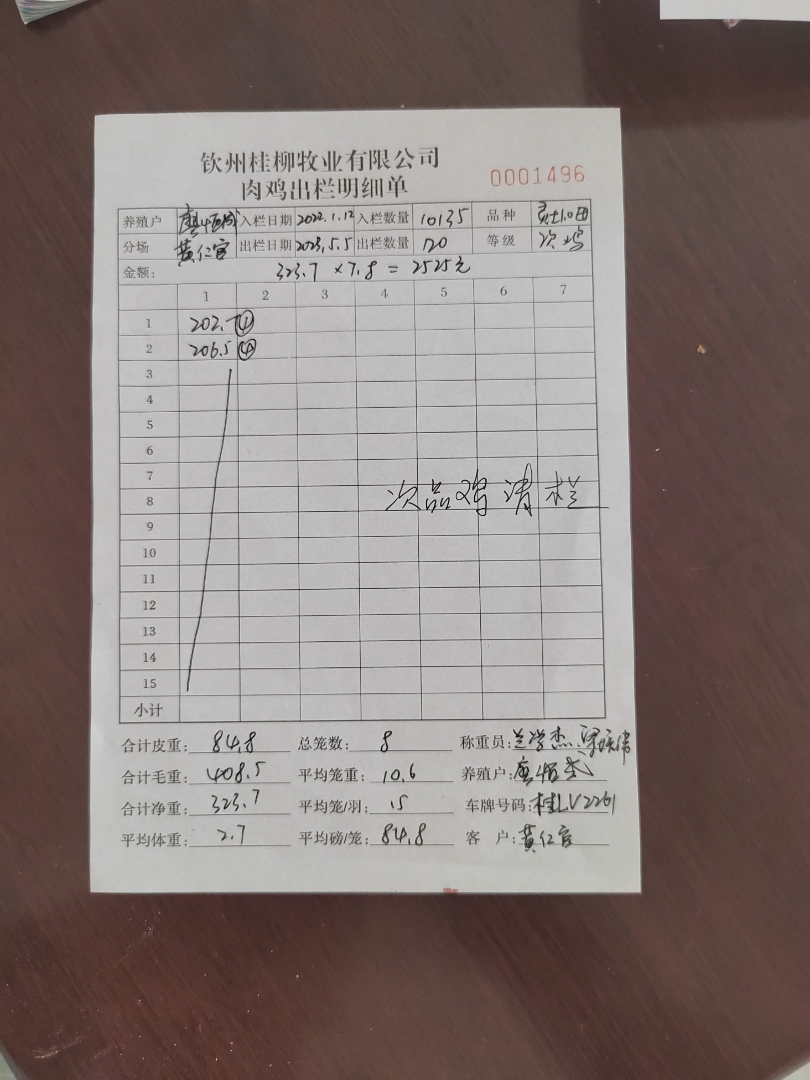 钦州桂柳牧业有限公司
肉鸡出栏明细单
0001496
养殖户 入栏日期 2022.1.12 入栏数量 10135 品种
分场 黄仁官 出栏日期 2023.5.5 出栏数量 120 等级 次鸡
金额: 323.7 × 7.8 = 2525元
1 2 3 4 5 6 7
1 202. ④
2 206.5 ④
3
4
5
6
7
次品鸡清栏
8
9
10
11
12
13
14
15
小计
合计皮重: 84.8 总笼数: 8 称重员: 兰学杰
合计毛重: 408.5 平均笼重: 10.6 养殖户:
合计净重: 323.7 平均笼/羽: 15 车牌号码: 桂LV2261
平均体重: 2.7 平均磅/笼: 84.8 客 户: 黄仁官